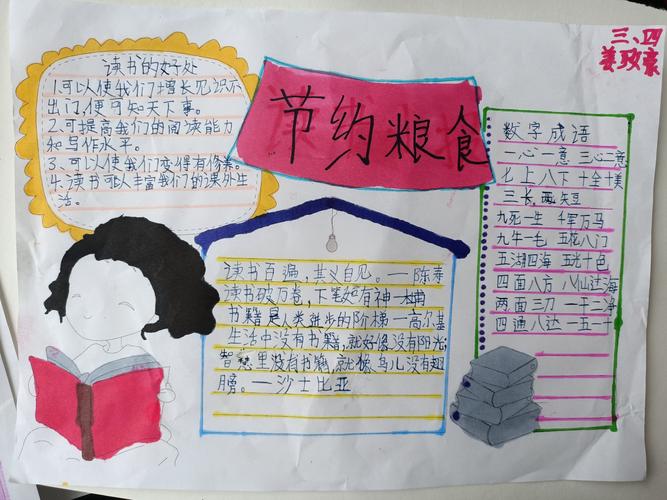 三、四
姜玫豪
节约粮食
读书的好处
1.可以使我们增长见识不
出门,便可知天下事。
2.可提高我们的阅读能力
和写作水平。
3.可以使我们变得有修养。
4.读书可以丰富我们的课外生
活。
读书百遍,其义自见。——陈寿
读书破万卷,下笔如有神
书籍是人类进步的阶梯——高尔基
生活中没有书籍,就好像没有阳光;
智慧里没有书籍,就像鸟儿没有翅
膀。——沙士比亚
数字成语
一心一意 三心二意
七上八下 十全十美
三长两短
九死一生 千军万马
九牛一毛 五花八门
五湖四海 五光十色
四面八方 八仙过海
两面三刀 一干二净
四通八达 一五一十